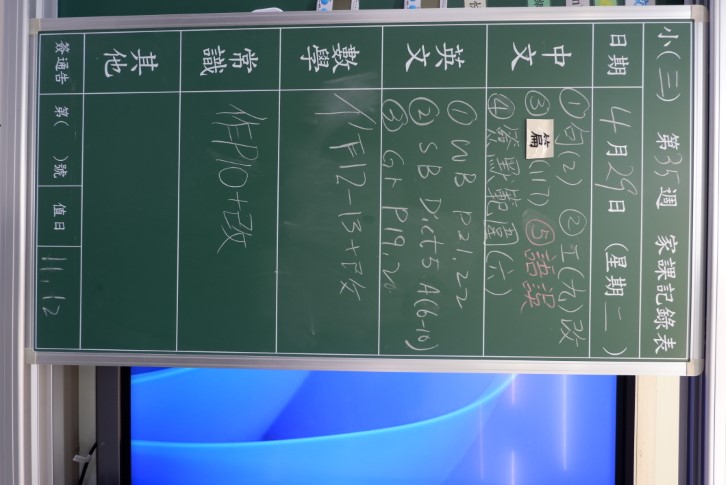 小(三) 第35週 家課記錄表
日期 4月29日 (星期二)
中文 ①句(2) ②工(九)改
③篇(17) ⑤語譯
④簽默範圍(六)
英文 ① WB P21,22
② SB Dict 5 A(6-10)
③ Gr P19,20
數學 作P12-13+改
常識 作P10+改
其他
簽通告 第( )號 值日 11,12